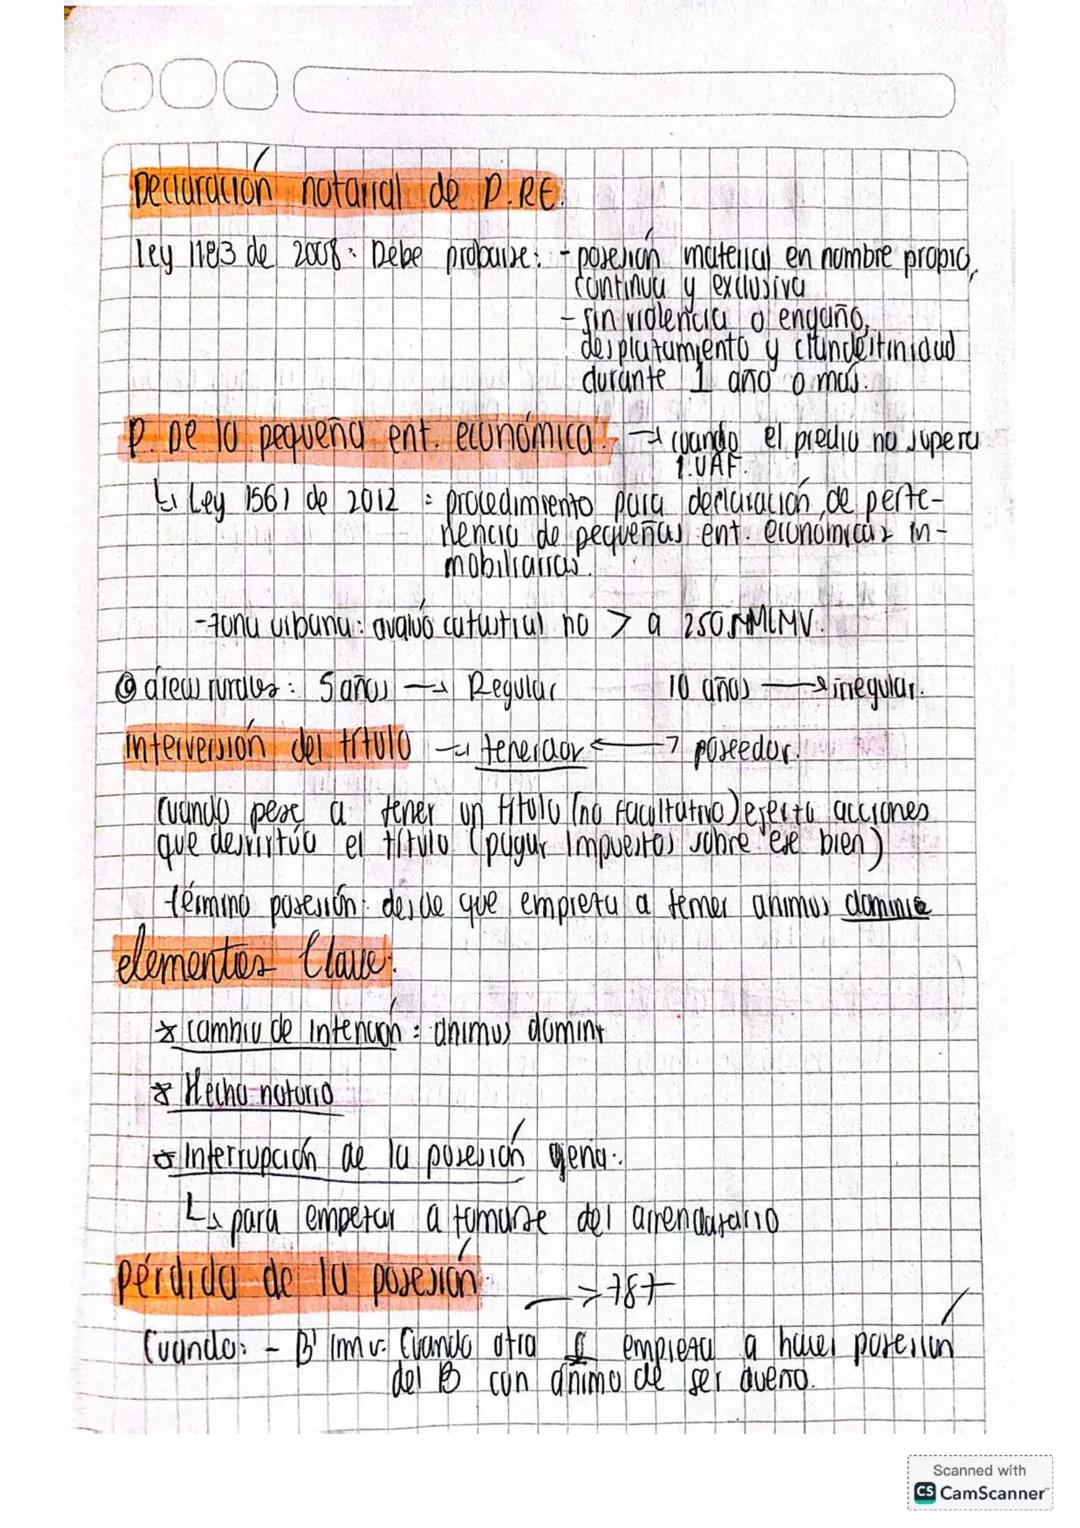 Declaración notarial de P.RE.
ley 1183 de 2008: Debe probarse: - posesión material en nombre propio,
continua y exclusiva
- sin violencia o engaño,
desplazamiento y clandestinidad
durante 1 año o más.
P. De la pequeña ent. económica. → cuando el predio no supera
1.UAF.
↳ Ley 1561 de 2012 : procedimiento para declaración de perte-
nencia de pequeñas ent. económicas in-
mobiliarias.
- zona urbana: avalúo catastral no > a 250 SMLMV.
áreas rurales: 5 años → Regular 10 años → irregular.
interversión del título → tenedor ↔ poseedor.
Cuando pese a tener un título (no facultativo) ejecuta acciones
que desvirtúa el título (pagar impuestos sobre ese bien)
término posesión: desde que empieza a temer animus dominie
elementos Clave:
* cambio de intención: animus domini
* Hecho notorio
* Interrupción de la posesión ajena:
↳ para empezar a tomarse del arrendatario
pérdida de la posesión → 787
Cuando: - B' inmu: Cuando otra empieza a hacer posesión
del B con ánimo de ser dueño.
Scanned with
CS CamScanner